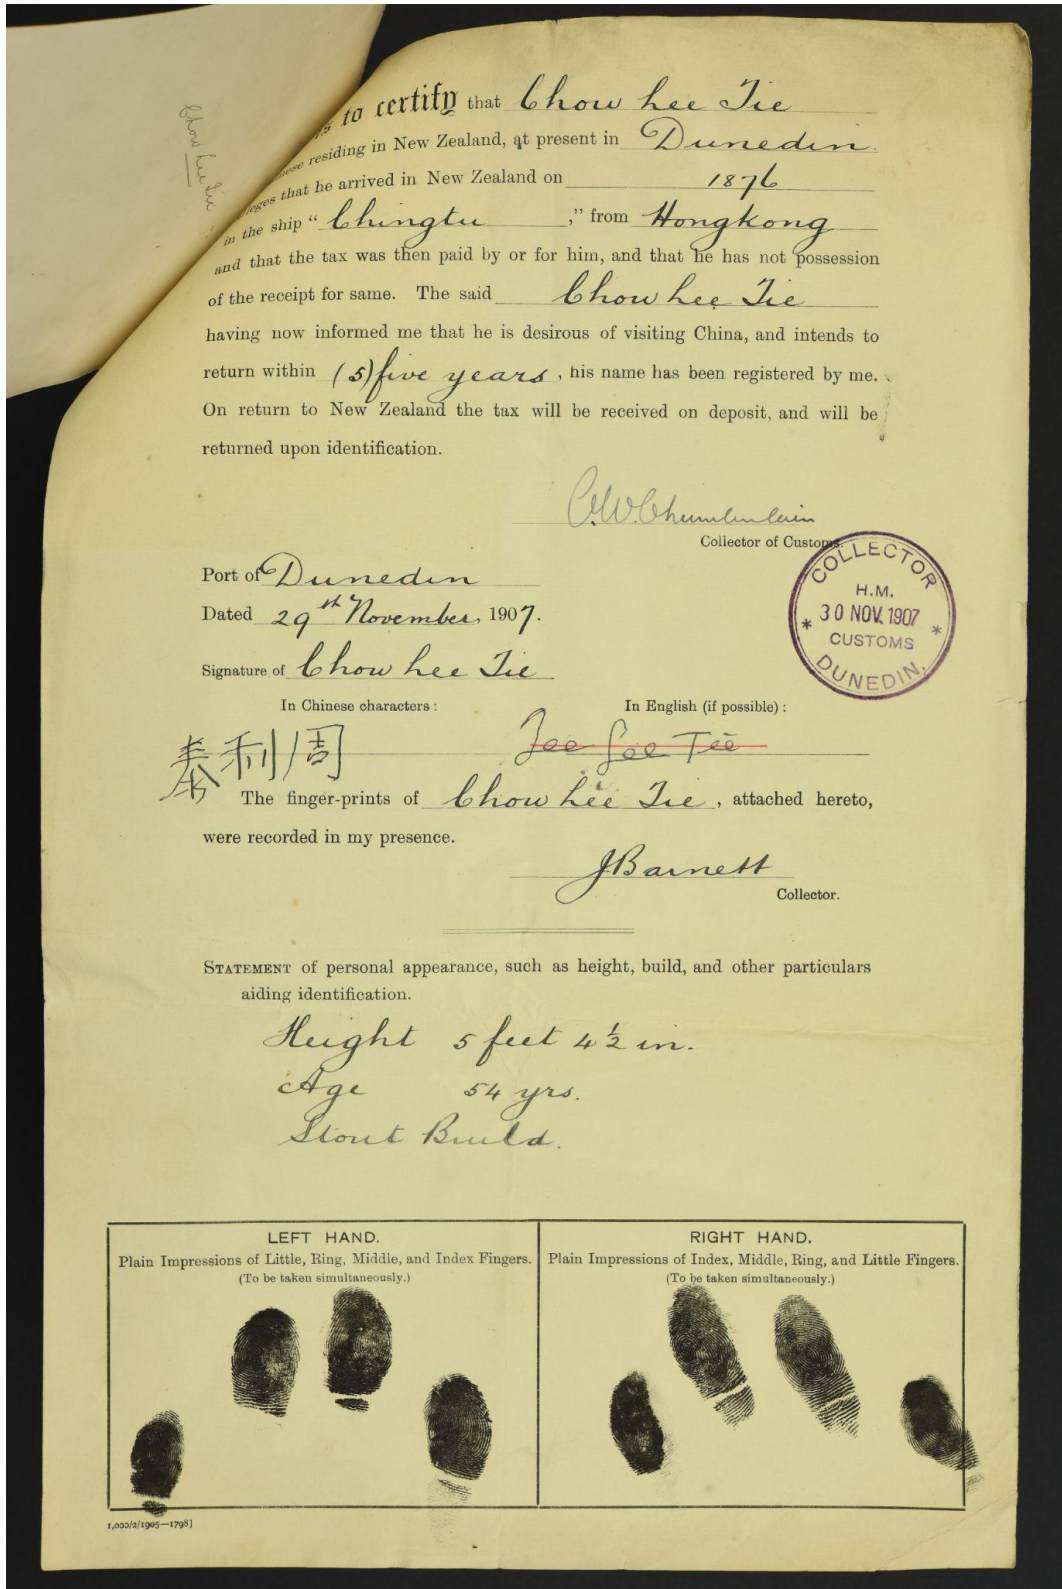 Chow Lee Tie
is to certify that Chow Lee Tie
residing in New Zealand, at present in Dunedin.
that he arrived in New Zealand on 1876
in the ship "Chingtu ," from Hongkong
and that the tax was then paid by or for him, and that he has not possession
of the receipt for same. The said Chow Lee Tie
having now informed me that he is desirous of visiting China, and intends to
return within (5) five years, his name has been registered by me.
On return to New Zealand the tax will be received on deposit, and will be
returned upon identification.
C.W. Chamberlain
Collector of Customs.
COLLECTOR
H.M.
30 NOV. 1907
CUSTOMS
DUNEDIN.
Port of Dunedin
Dated 29th November, 1907.
Signature of Chow Lee Tie
In Chinese characters: In English (if possible):
泰利周 Jee Lee Tee
The finger-prints of Chow Lee Tie, attached hereto,
were recorded in my presence.
J Barnett
Collector.
STATEMENT of personal appearance, such as height, build, and other particulars
aiding identification.
Height 5 feet 4½ in.
Age 54 yrs.
Stout Build.
LEFT HAND.
Plain Impressions of Little, Ring, Middle, and Index Fingers.
(To be taken simultaneously.)
RIGHT HAND.
Plain Impressions of Index, Middle, Ring, and Little Fingers.
(To be taken simultaneously.)
1,000/2/1905—1798]